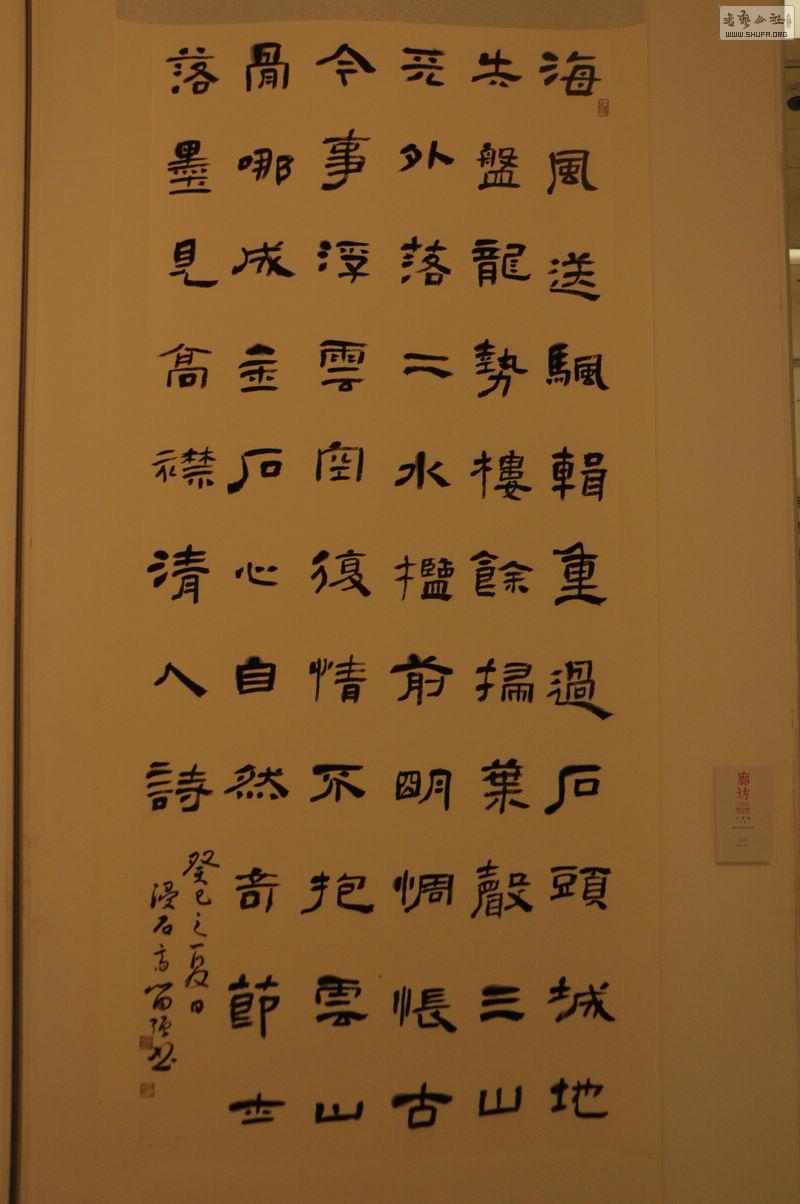 海風送颿輯重過石頭城地
去盤龍勢樓餘掃葉聲三山
天外落二水檻前明惆悵古
今事浮雲空復情不抱雲山
骨哪成金石心自然奇節士
落墨見高襟清人詩
癸巳之夏日
漫石高
書
廊坊
WWW.SHUFA.ORG